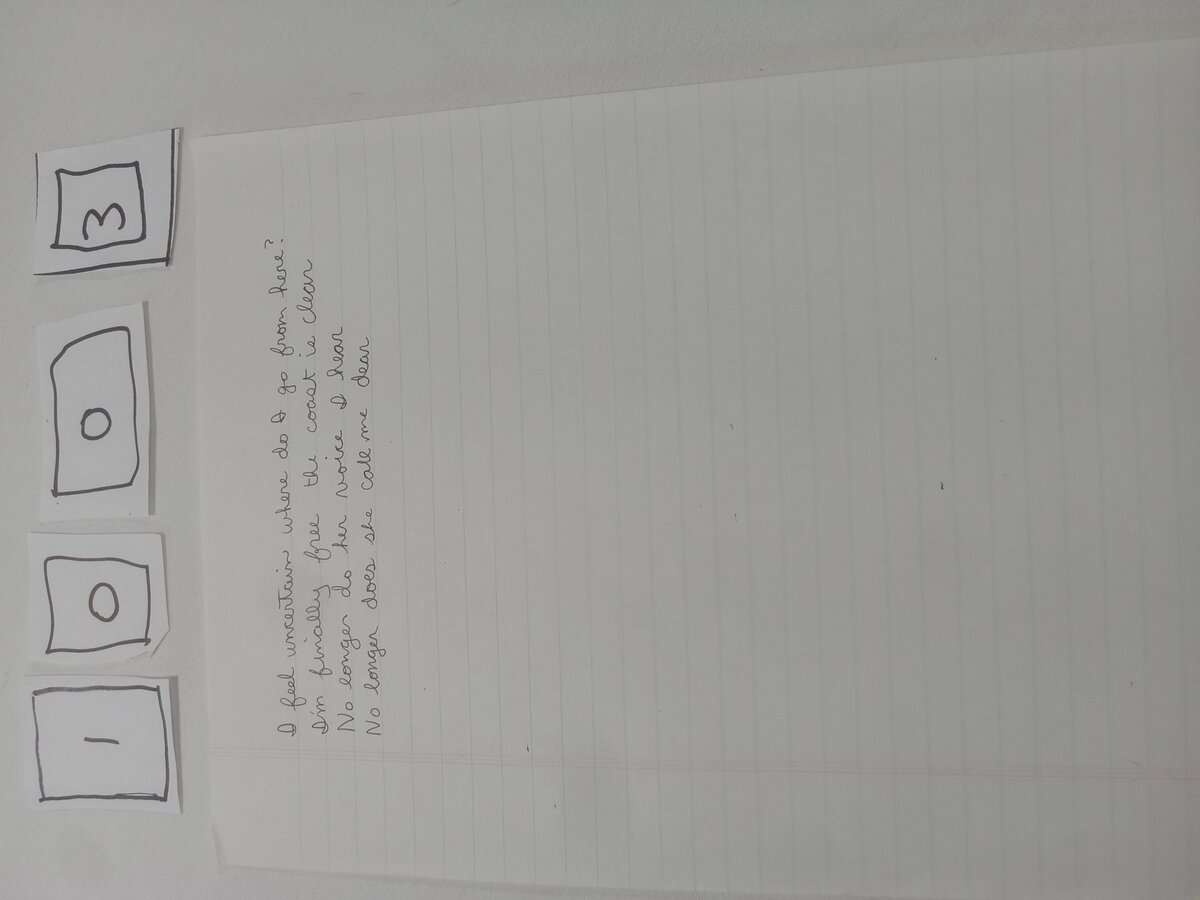 1 0 0 3
I feel uncertain where do I go from here?
I'm finally free the coast is clear
No longer do her voice I hear
No longer does she call me dear